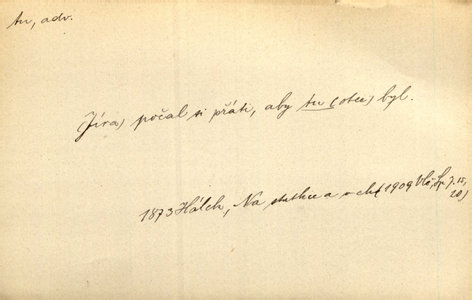 tu, adv.
(Jíra) počal si přáti, aby tu (otec) byl.
1873 Hálek, Na statku a v ch. (1909
20)